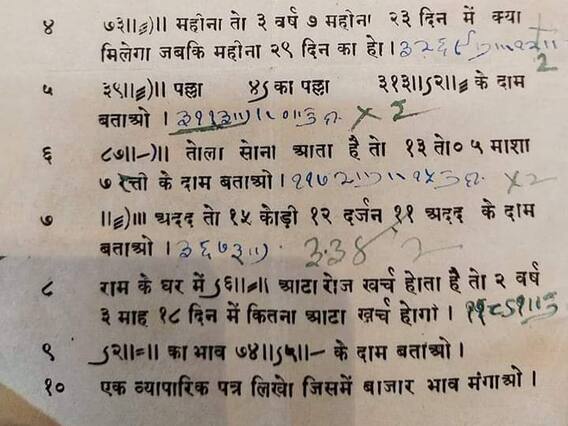 ४ ७३॥≡)॥ महीना तो ३ वर्ष ७ महीना २३ दिन में क्या
मिलेगा जबकि महीना २९ दिन का हो।
५ ३९॥≡)॥ पल्ला ४ऽ का पल्ला ३१३॥ऽ२॥≡ के दाम
बताओ। × 2
६ ८७॥-)॥ तोला सोना आता है तो १३ तो० ५ माशा
७ रत्ती के दाम बताओ। ×2
७ ॥≡)॥। अदद तो १५ कोड़ी १२ दर्जन ११ अदद के दाम
बताओ। ३६७३॥) 2
८ राम के घर में ऽ६॥=॥ आटा रोज खर्च होता है तो २ वर्ष
३ माह १८ दिन में कितना आटा खर्च होगा।
९ ऽ२॥=॥ का भाव ७४॥ऽ५॥- के दाम बताओ।
१० एक व्यापारिक पत्र लिखो जिसमें बाजार भाव मंगाओ।